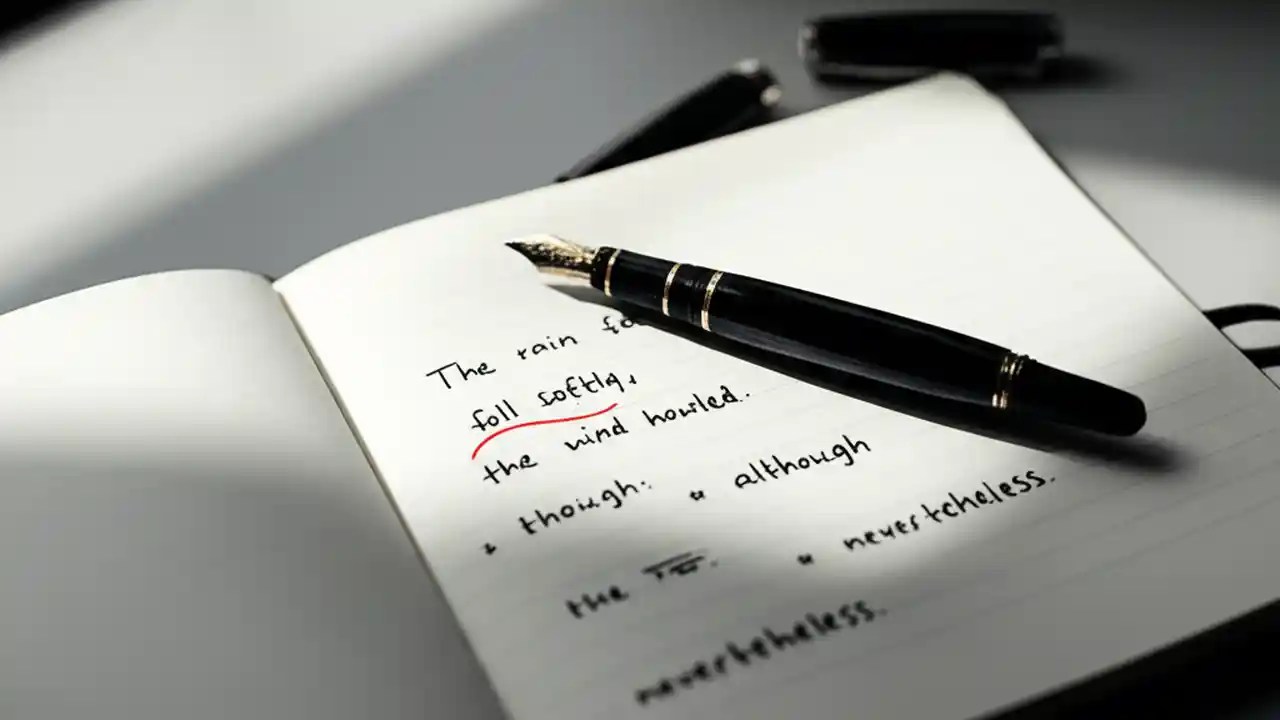 The rain
foll softly,
the wind howled.
• though: • although
the • nevertheless.
nevertheless.